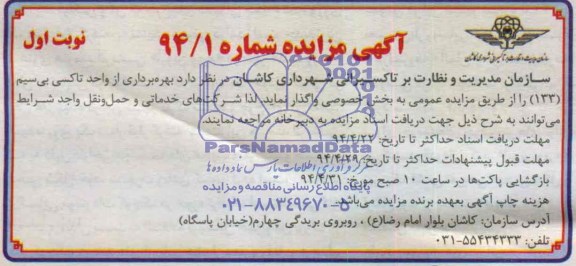 آگهی مزایده شماره ۹۴/۱
نوبت اول
سازمان مدیریت و نظارت بر تاکسیرانی شهرداری کاشان در نظر دارد بهره‌برداری از واحد تاکسی بی‌سیم
(۱۳۳) را از طریق مزایده عمومی به بخش خصوصی واگذار نماید. لذا شرکت‌های خدماتی و حمل‌ونقل واجد شرایط
می‌توانند به شرح ذیل جهت دریافت اسناد مزایده به دبیرخانه مراجعه نمایند.
مهلت دریافت اسناد حداکثر تا تاریخ: ۹۴/۴/۲۲
مهلت قبول پیشنهادات حداکثر تا تاریخ: ۹۴/۴/۲۹
بازگشایی پاکت‌ها در ساعت ۱۰ صبح مورخ: ۹۴/۴/۳۱
هزینه چاپ آگهی بعهده برنده مزایده می‌باشد.
آدرس سازمان: کاشان بلوار امام رضا(ع) ، روبروی بریدگی چهارم(خیابان پاسگاه)
تلفن: ۵۵۴۳۴۳۳۳-۰۳۱
ParsNamadData
پایگاه اطلاع رسانی مناقصه و مزایده
۰۲۱-۸۸۳۴۹۶۷۰-۵